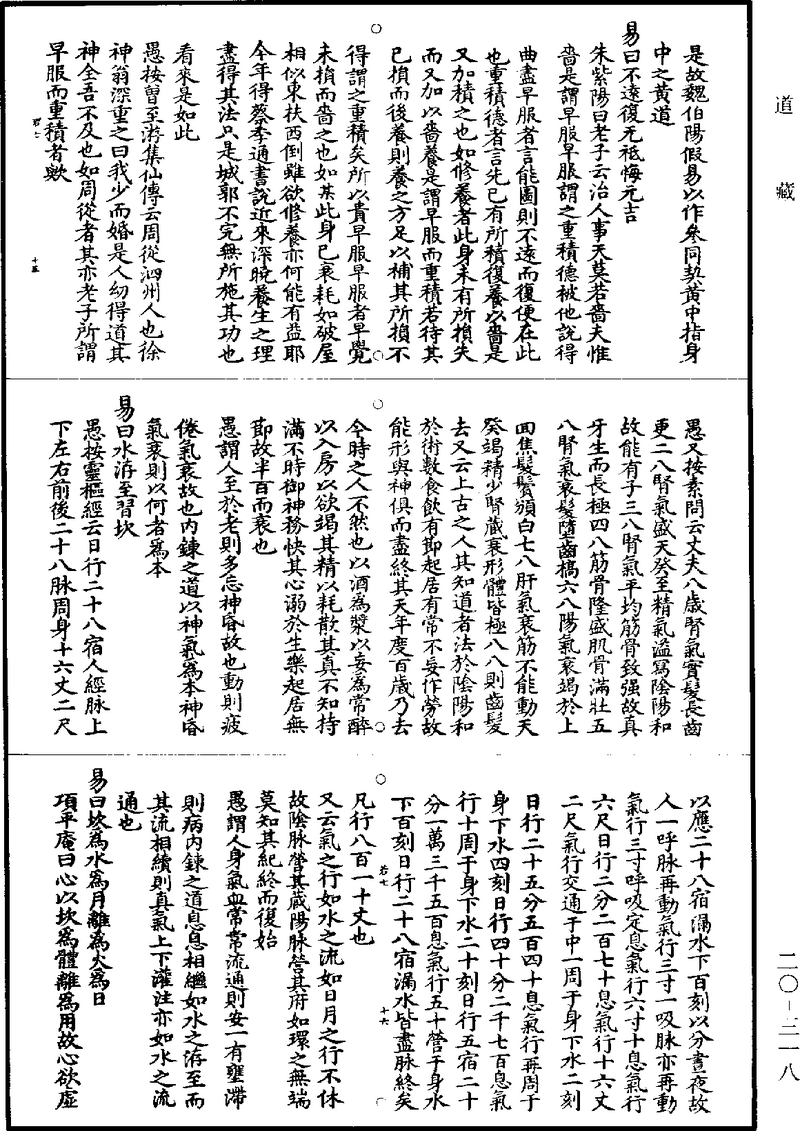 道藏
二〇–三一八
是故魏伯陽假易以作參同契黃中指身
中之黃道
易曰不遠復无祗悔元吉
朱紫陽曰老子云治人事天莫若嗇夫惟
嗇是謂早服早服謂之重積德被他說得
曲盡早服者言能圖則不遠而復便在此
也重積德者言先已有所積復養以嗇是
又加積之也如修養者此身未有所損失
而又加以嗇養是謂早服而重積若待其
已損而後養則養之方足以補其所損不
得謂之重積矣所以貴早服早服者早覺
未損而嗇之也如某此身已衰耗如破屋
相似東扶西倒雖欲修養亦何能有益耶
今年得蔡季通書說近來深曉養生之理
盡得其法只是城郭不完無所施其功也
看來是如此
愚按曾至游集仙傳云周從泗州人也徐
神翁深重之曰我少而婚是人幼得道其
神全吾不及也如周從者其亦老子所謂
早服而重積者歟
若七
十五
愚又按素問云丈夫八歲腎氣實髮長齒
更二八腎氣盛天癸至精氣溢寫陰陽和
故能有子三八腎氣平均筋骨致强故真
牙生而長極四八筋骨隆盛肌骨滿壯五
八腎氣衰髮墮齒槁六八陽氣衰竭於上
面焦髮鬢頒白七八肝氣衰筋不能動天
癸竭精少腎藏衰形體皆極八八則齒髮
去又云上古之人其知道者法於陰陽和
於術數食飲有節起居有常不妄作勞故
能形與神俱而盡終其天年度百歲乃去
今時之人不然也以酒為漿以妄為常醉
以入房以欲竭其精以耗散其真不知持
滿不時御神務快其心溺於生樂起居無
節故半百而衰也
愚謂人至於老則多忘神昏故也動則疲
倦氣衰故也內鍊之道以神氣為本神昏
氣衰則以何者為本
易曰水洊至習坎
愚按靈樞經云日行二十八宿人經脉上
下左右前後二十八脉周身十六丈二尺
以應二十八宿漏水下百刻以分晝夜故
人一呼脉再動氣行三寸一吸脉亦再動
氣行三寸呼吸定息氣行六寸十息氣行
六尺日行二分二百七十息氣行十六丈
二尺氣行交通于中一周于身下水二刻
日行二十五分五百四十息氣行再周于
身下水四刻日行四十分二千七百息氣
行十周于身下水二十刻日行五宿二十
分一萬三千五百息氣行五十營于身水
下百刻日行二十八宿漏水皆盡脉終矣
若七
十六
凡行八百一十丈也
又云氣之行如水之流如日月之行不休
故陰脉營其藏陽脉營其府如環之無端
莫知其紀終而復始
愚謂人身氣血常常流通則安一有壅滯
則病內鍊之道息息相繼如水之洊至而
其流相續則真氣上下灌注亦如水之流
通也
易曰坎為水為月離為火為日
項平庵曰心以坎為體離為用故心欲虛